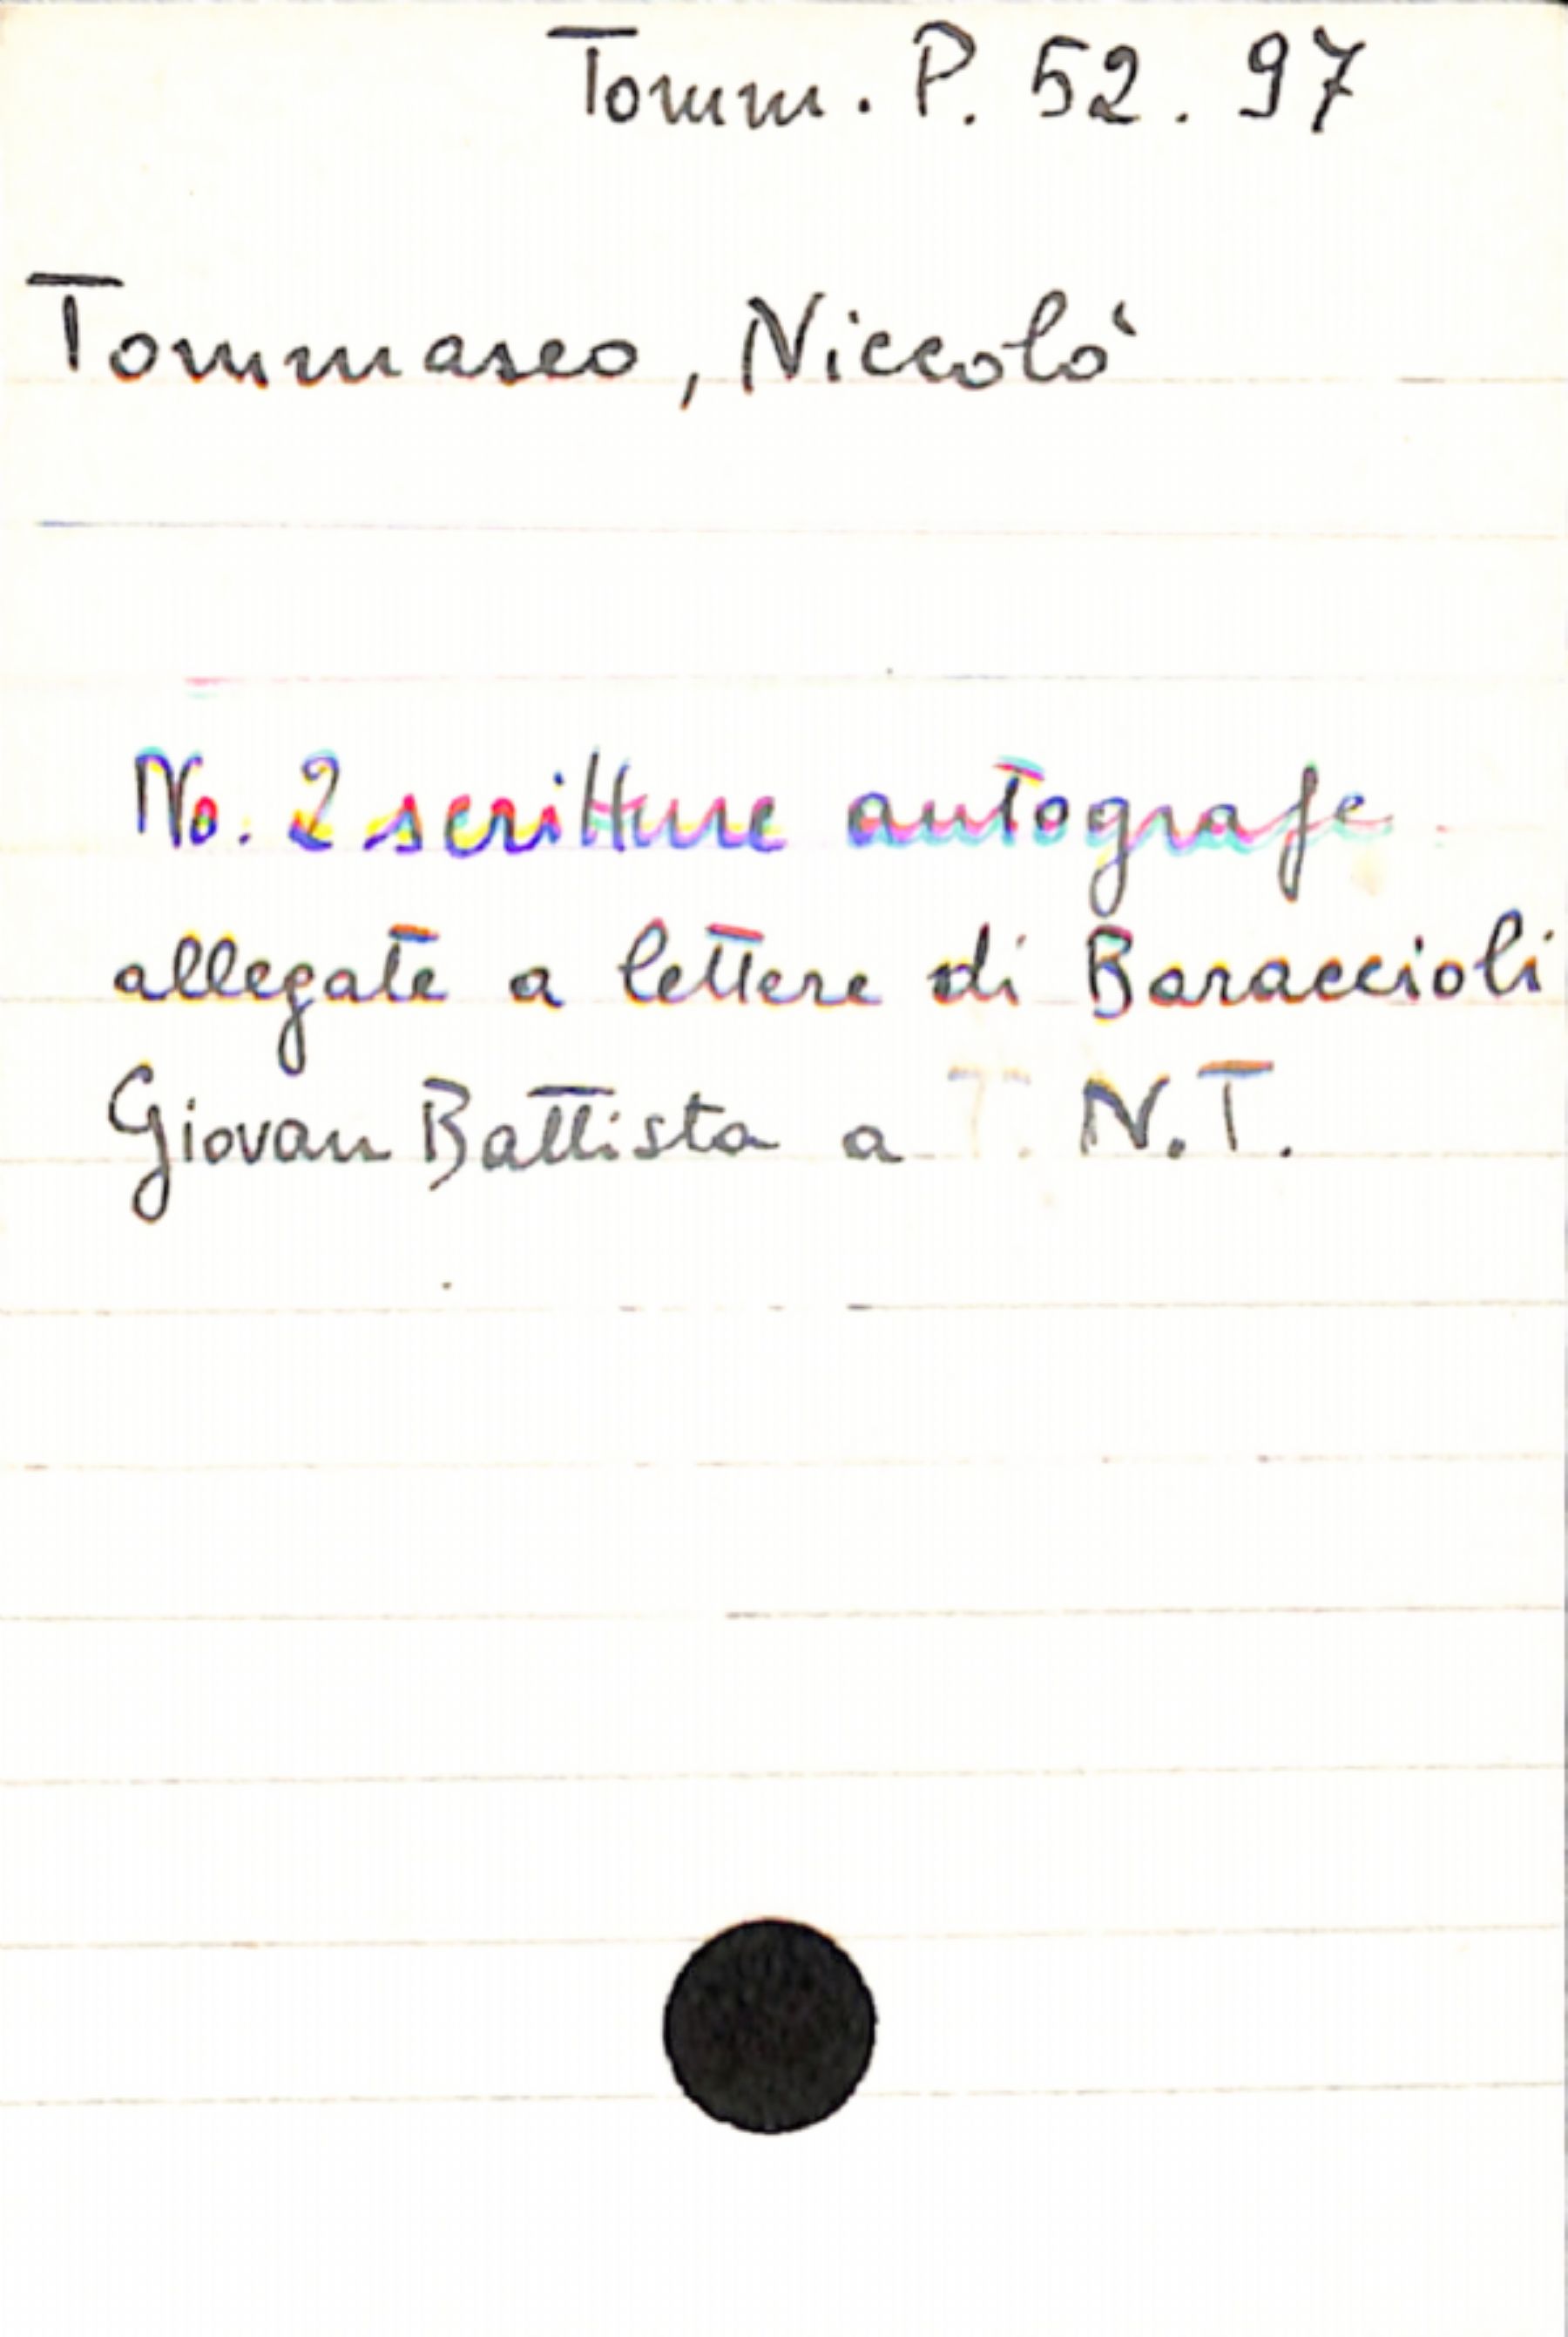 Tomm. P. 52. 97
Tommaseo, Niccolò
No. 2 scritture autografe
allegate a lettere di Baraccioli
Giovan Battista a N.T.